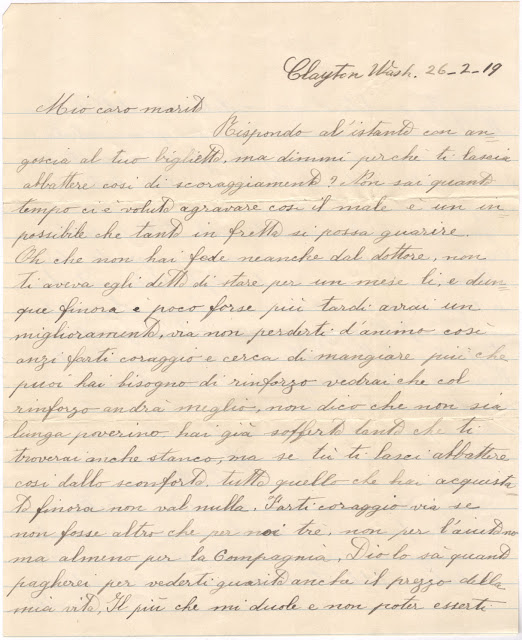 Clayton Wash. 26-2-19
Mio caro marito
Rispondo al'istanto con an=
goscia al tuo biglietto, ma dimmi perchè ti lascia
abbattere cosi di scoraggiamento? Non sai quanto
tempo ci è voluto agravare così il male è un in=
possibile che tanto in fretta si possa guarire.
Oh che non hai fede neanche dal dottore, non
ti aveva egli detto di stare per un mese li, e dun=
que finora è poco forse più tardi avrai un
miglioramento, via non perderti d'animo così
anzi farti coraggio e cerca di mangiare più che
puoi hai bisogno di rinforzo vedrai che col
rinforzo andrà meglio, non dico che non sia
lunga poverino hai già sofferto tanto che ti
troverai anche stanco, ma se tù ti lasci abbattere
cosi dallo sconforto, tutto quello che hai acquista
to finora non val nulla. Farti coraggio via se
non fosse altro che per noi tre, non per l'aiuto no
ma almeno per la Compagnia, Dio lo sà quanto
pagherei per vederti guarito anche il prezzo della
mia vita, Il più che mi duole e non poter esserti